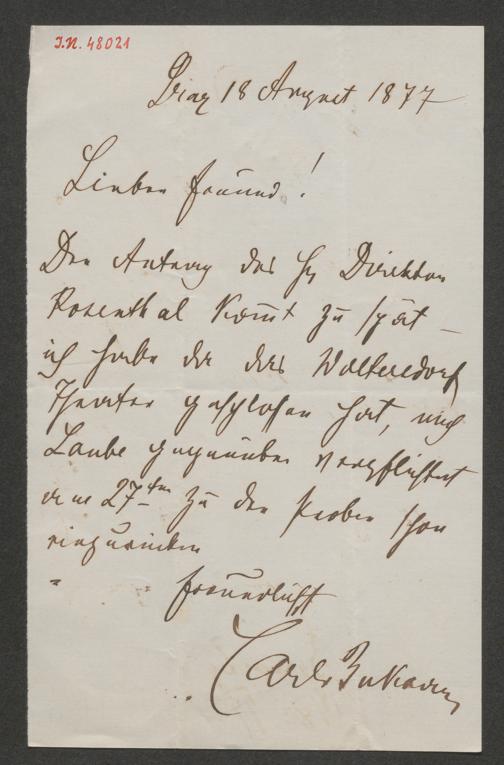 I.N. 48021
Graz 18 August 1877
Lieber Freund!
Der Antrag des H Direktor
Rosenthal kom̄t zu spät –
ich habe da das Woltersdorf
Theater geschlossen hat, mich
Laube gegenüber verpflichtet
am 27ten zu den Proben schon
einzurücken
freundlichst
Carl